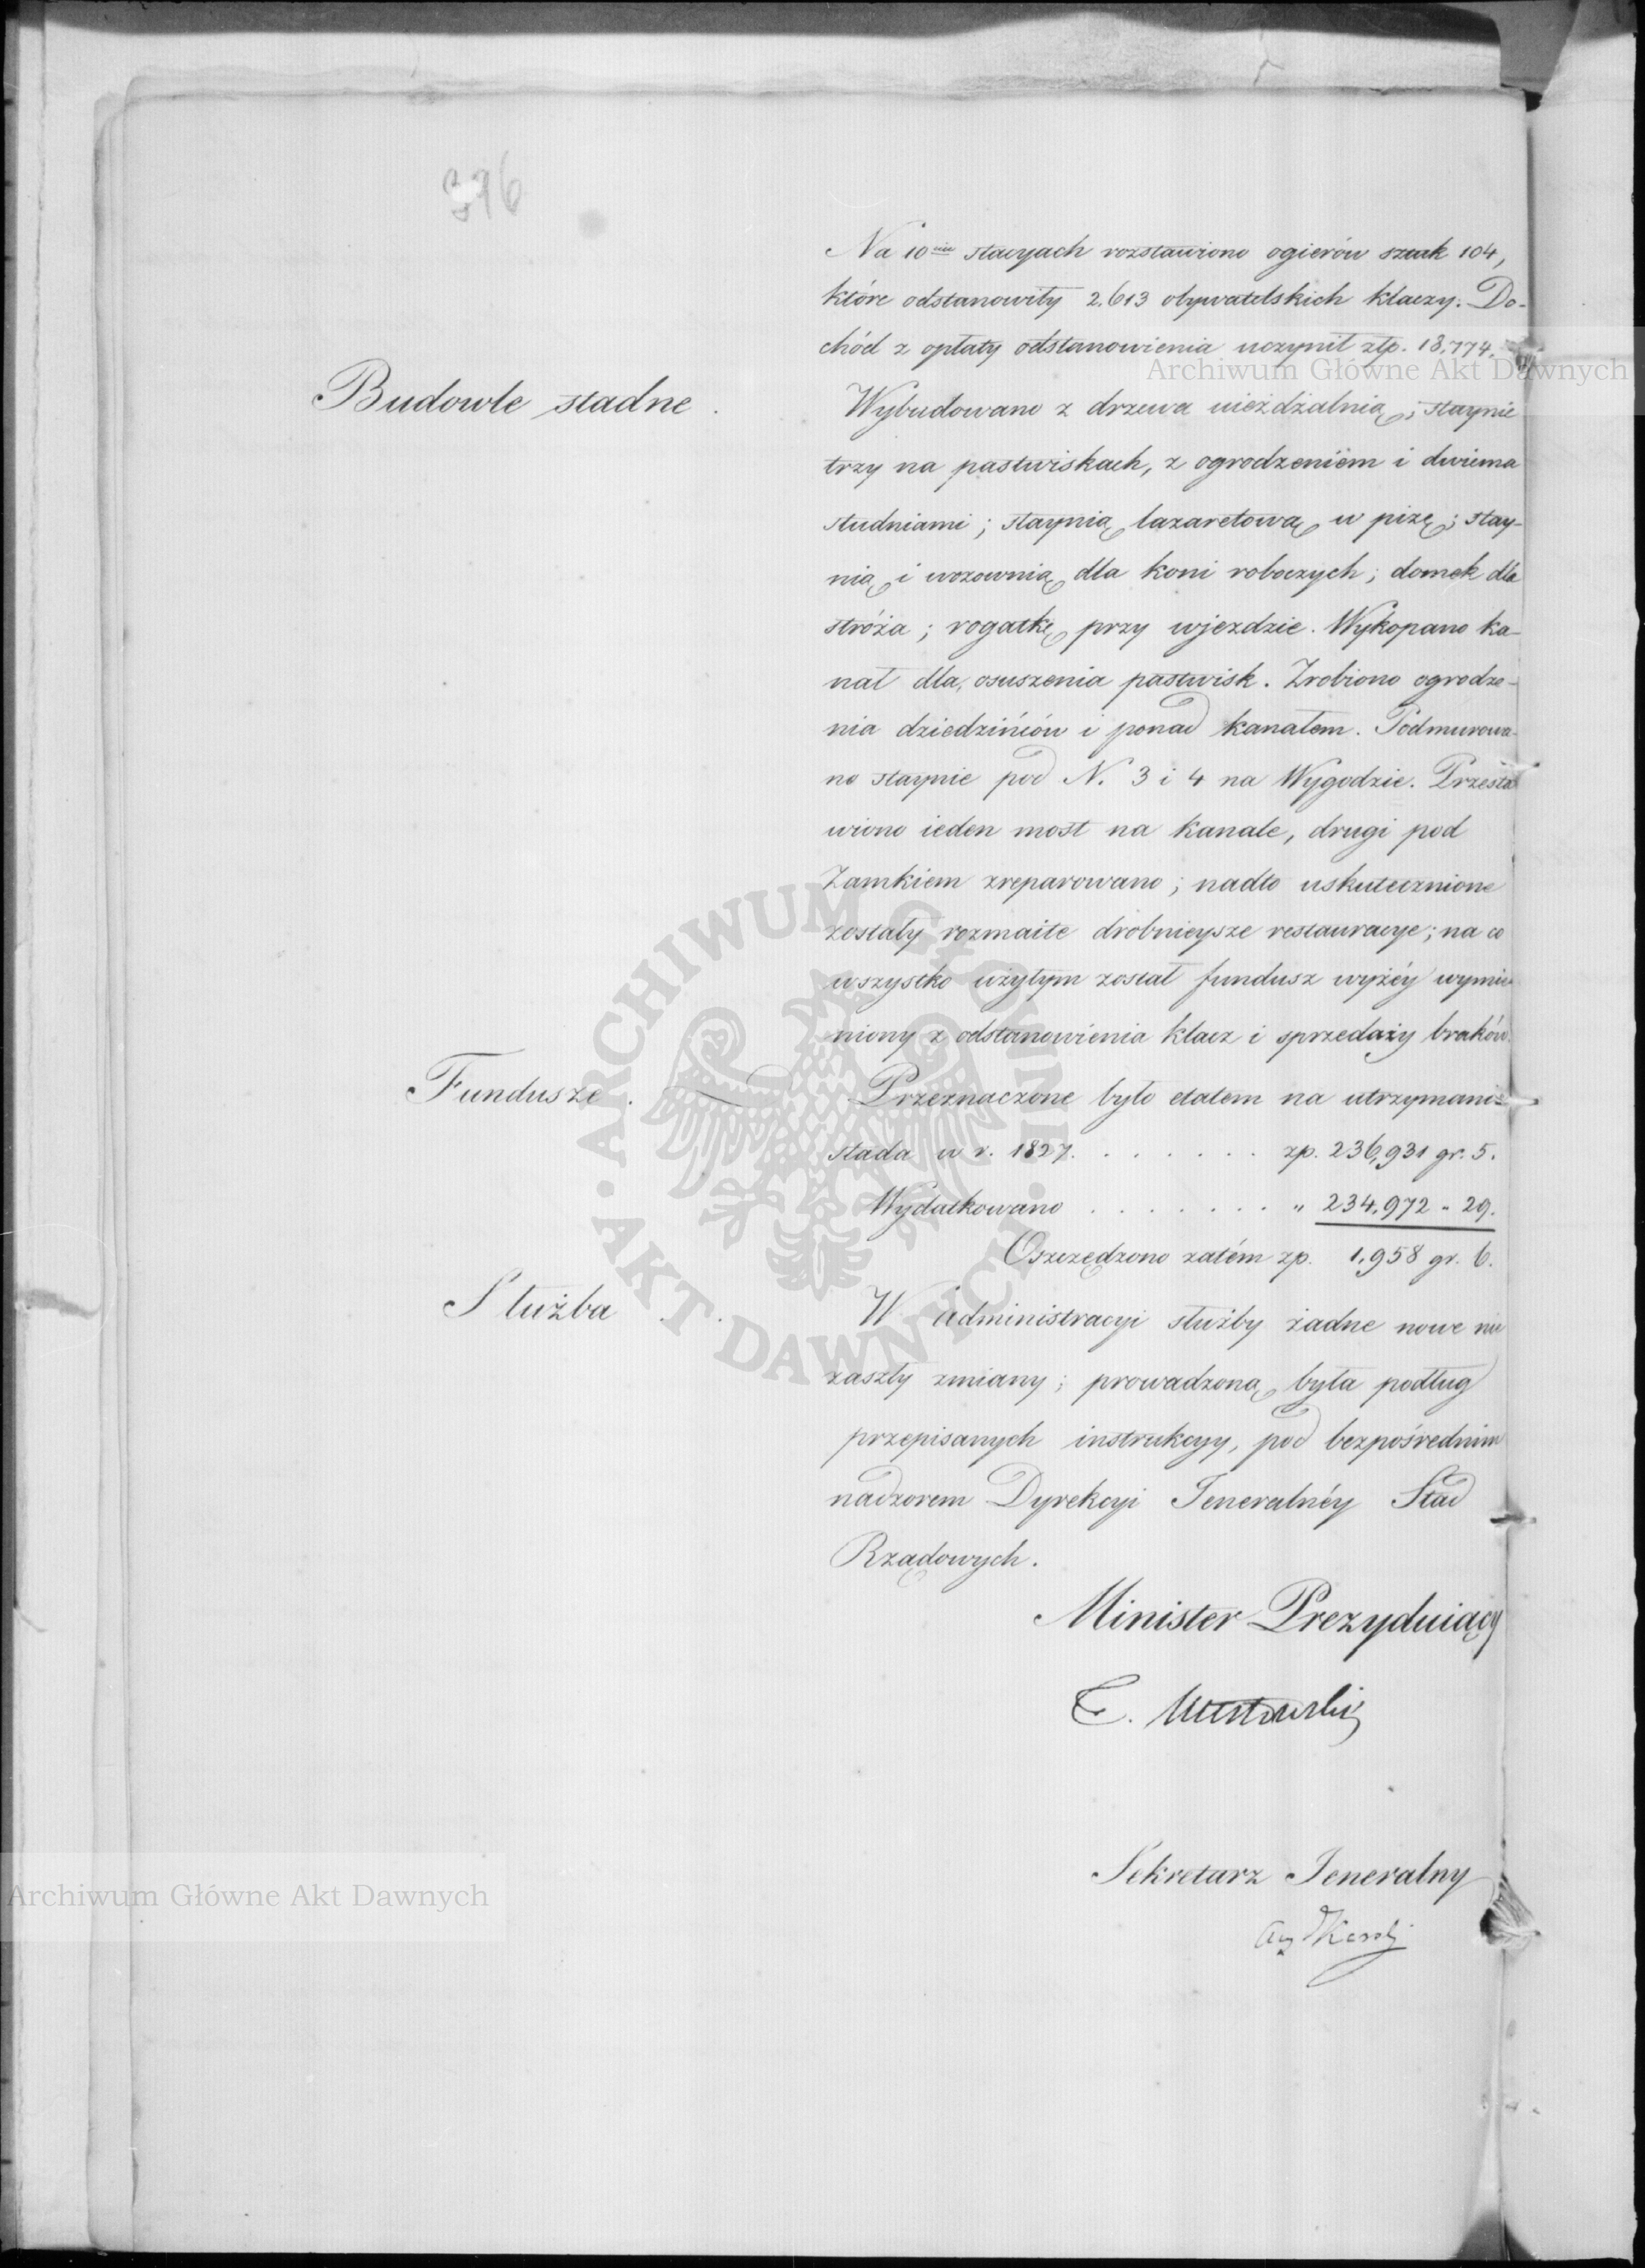 396
Na 10ciu stacyach rozstawiono ogierów sztuk 104,
które odstanowiły 2.613 obywatelskich klaczy. Do-
chód z opłaty odstanowienia uczynił złp. 13,774.
Budowle stadne.
Wybudowano z drzewa uieżdżalnią; staynie
trzy na pastwiskach, z ogrodzeniem i dwiema
studniami; staynią lazaretową w pizę; stay-
nią i wozownią dla koni roboczych; domek dla
stróża; rogatkę przy wjezdzie. Wykopano ka-
nał dla osuszenia pastwisk. Zrobiono ogrodze-
nia dziedzińców i ponad kanałem. Podmurowa-
no staynie pod N. 3 i 4 na Wygodzie. Przesta
wiono ieden most na kanale, drugi pod
Zamkiem zreparowano; nadto uskutecznione
zostały rozmaite drobnieysze restauracye; na co
wszystko użytym został fundusz wyżéy wymie-
niony z odstanowienia klacz i sprzedaży braków.
Fundusze.
Przeznaczone było etatem na utrzymanie
stada w r. 1827. . . . . . . zp. 236,931 gr. 5.
Wydatkowano . . . . . . . " 234,972 " 29.
Oszczędzono zatém zp. 1,958 gr. 6.
Służba . .
W administracyi służby żadne nowe nie
zaszły zmiany; prowadzoną była podług
przepisanych instrukcyy, pod bezpośrednim
nadzorem Dyrekcyi Jeneralnéy Stad
Rządowych.
Minister Prezyduiący
T. Mostowski
Sekretarz Jeneralny
Aug Karski
Archiwum Główne Akt Dawnych
Archiwum Główne Akt Dawnych
ARCHIWUM GŁÓWNE · AKT DAWNYCH ·